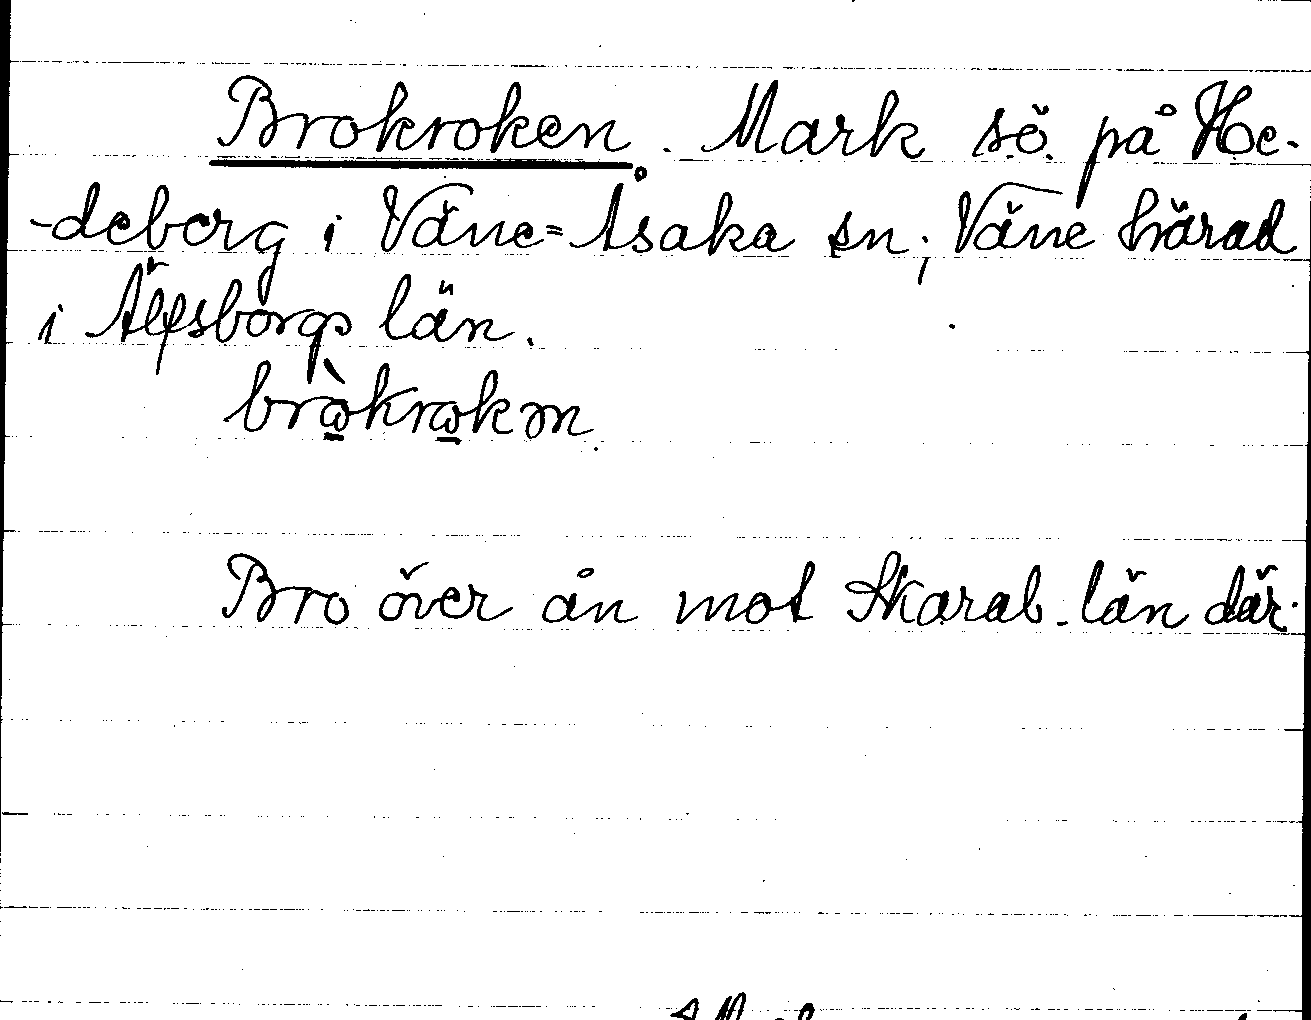 Brokroken. Mark sö. på He-
-deberg i Väne=Åsaka sn; Väne härad
i Älfsborgs län.
brὼkrωkən
Bro över ån mot Skarab. län där.